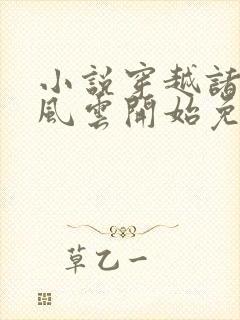 小說穿越諸
風雲開始免
草乙一